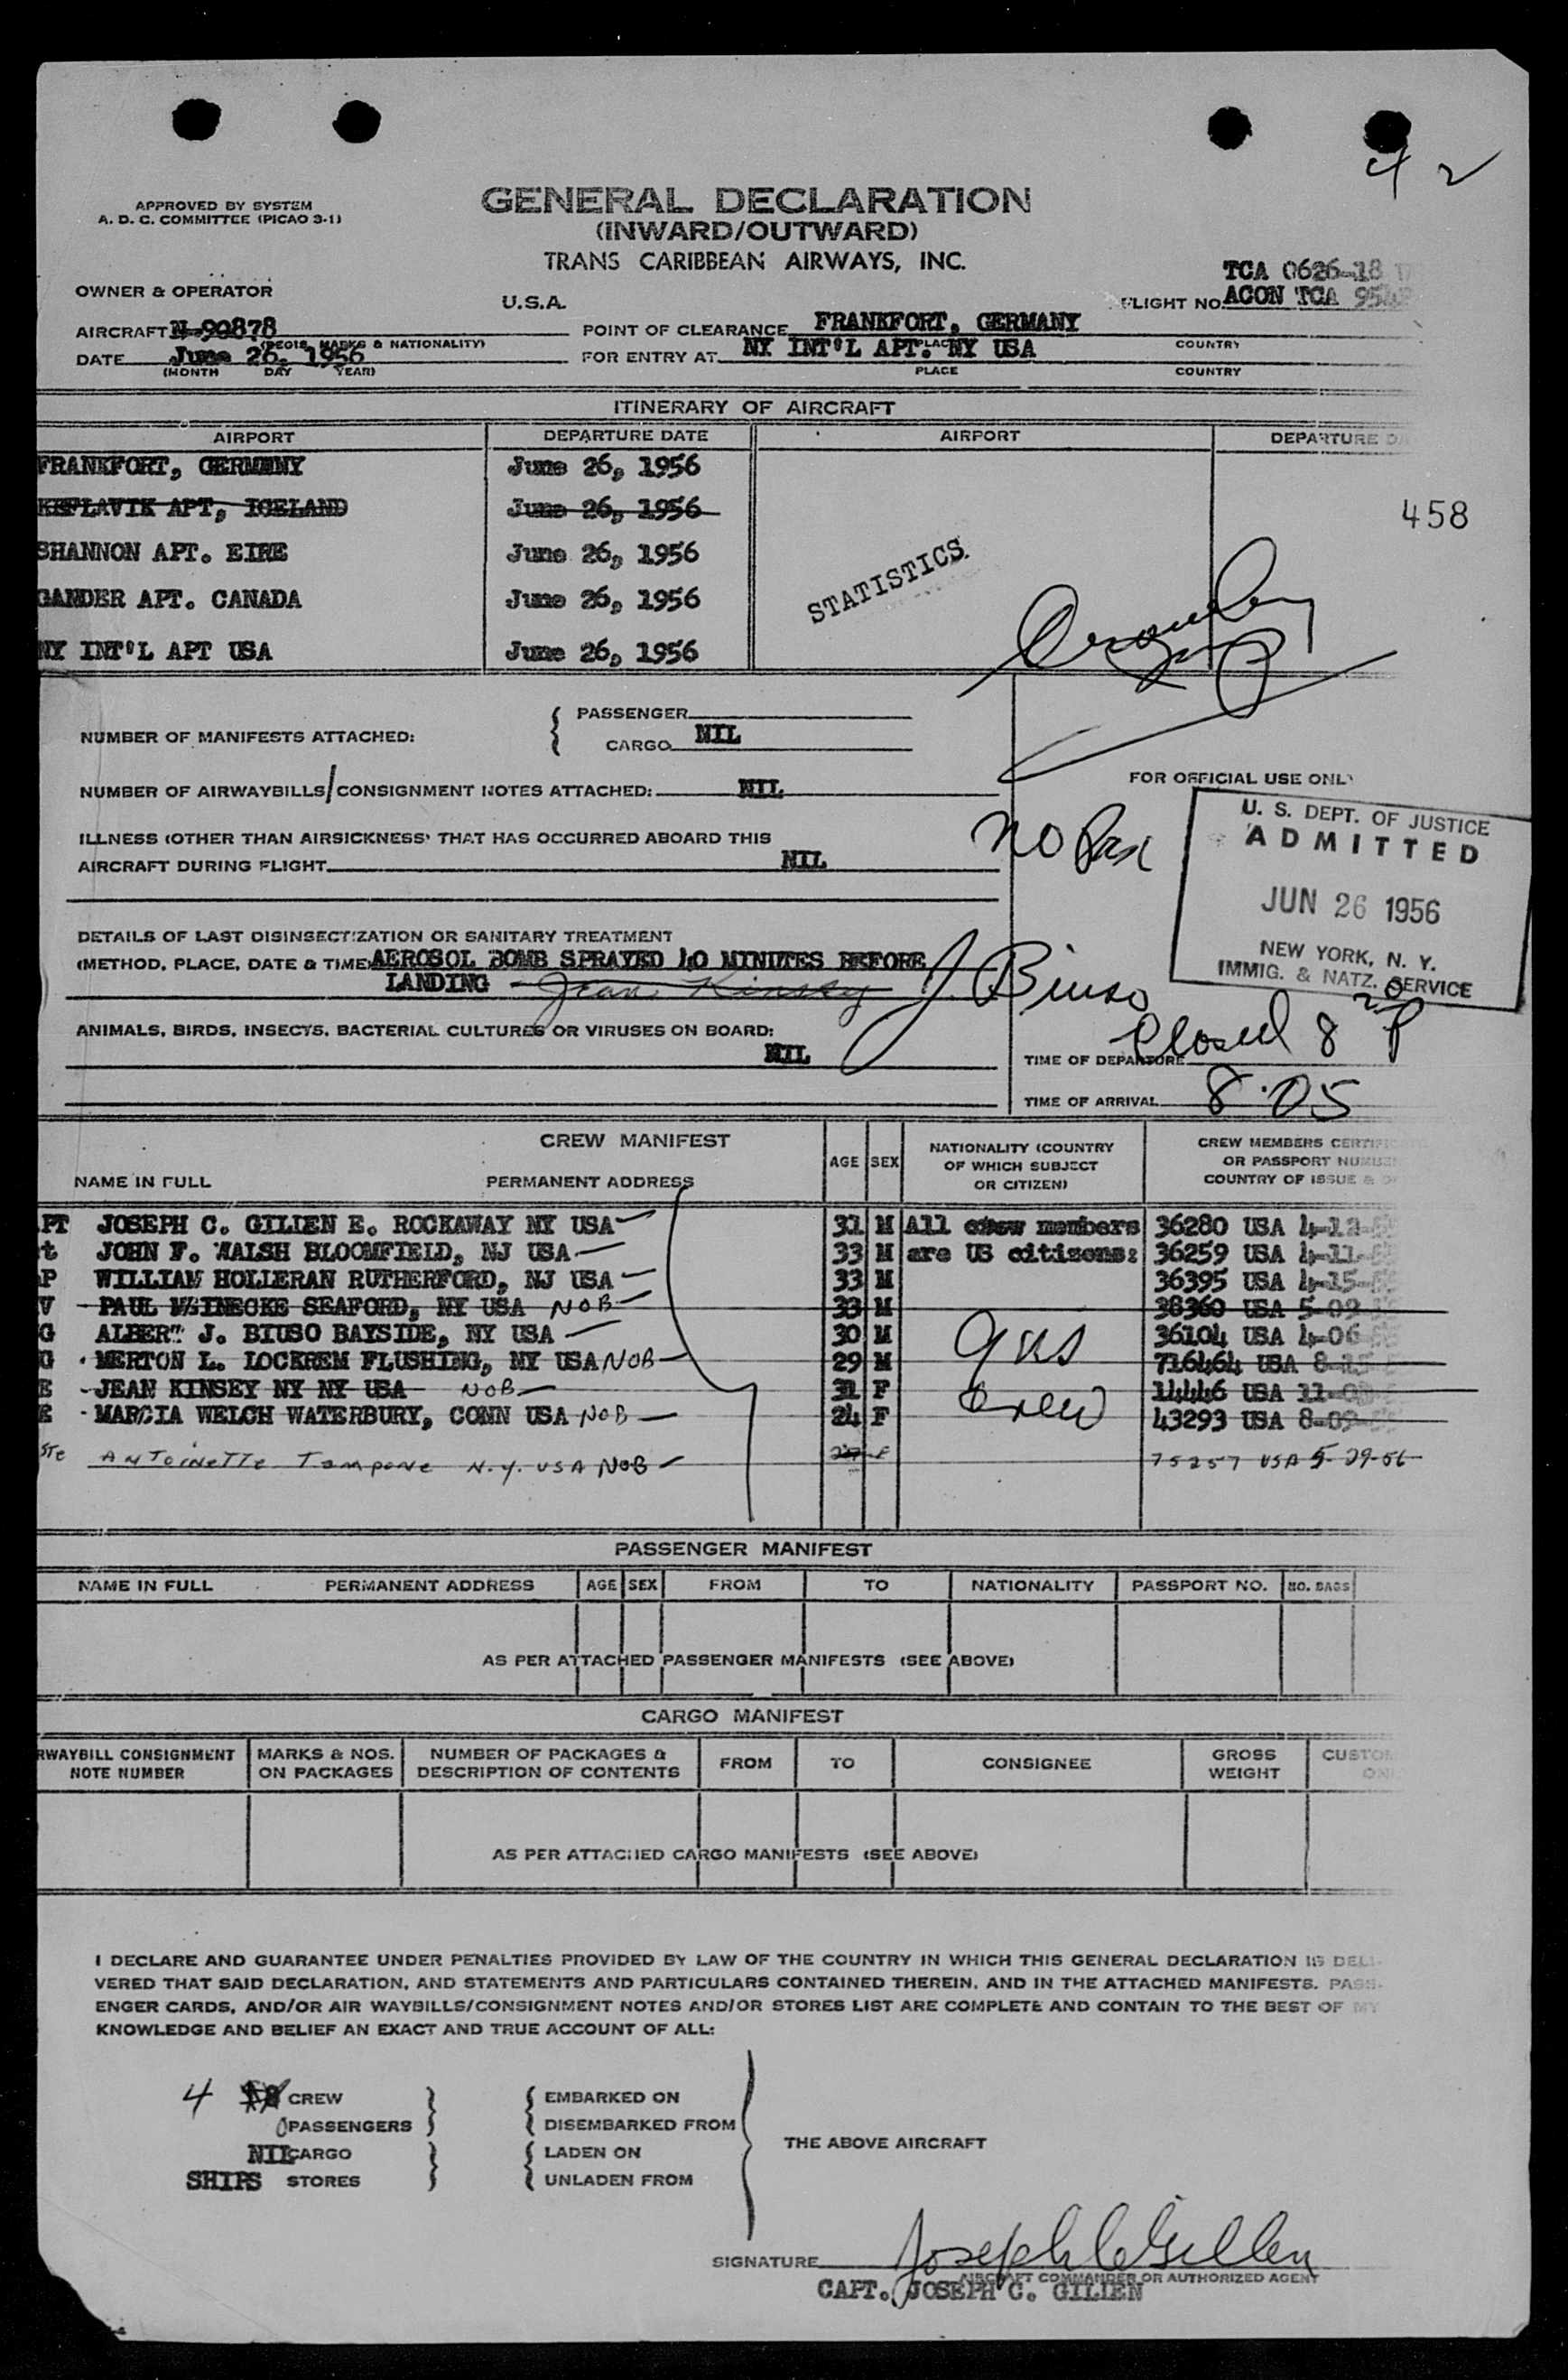 4 2
APPROVED BY SYSTEM
A. D. C. COMMITTEE (PICAO 3-1)
GENERAL DECLARATION
(INWARD/OUTWARD)
TRANS CARIBBEAN AIRWAYS, INC.
OWNER & OPERATOR
U.S.A.
TCA 0626-18
FLIGHT NO. ACON TCA
AIRCRAFT N-90878
(REGIS. MARKS & NATIONALITY)
POINT OF CLEARANCE FRANKFORT, GERMANY
PLACE COUNTRY
DATE June 26, 1956
(MONTH DAY YEAR)
FOR ENTRY AT NY INT'L APT. NY USA
PLACE COUNTRY
ITINERARY OF AIRCRAFT
AIRPORT DEPARTURE DATE AIRPORT DEPARTURE
FRANKFORT, GERMANY June 26, 1956
KEFLAVIK APT, ICELAND June 26, 1956
458
SHANNON APT. EIRE June 26, 1956
STATISTICS
GANDER APT. CANADA June 26, 1956
NY INT'L APT USA June 26, 1956
NUMBER OF MANIFESTS ATTACHED:
PASSENGER
CARGO NIL
NUMBER OF AIRWAYBILLS/CONSIGNMENT NOTES ATTACHED: NIL
FOR OFFICIAL USE ONLY
ILLNESS (OTHER THAN AIRSICKNESS) THAT HAS OCCURRED ABOARD THIS
AIRCRAFT DURING FLIGHT NIL
No Pax
U. S. DEPT. OF JUSTICE
ADMITTED
JUN 26 1956
NEW YORK, N. Y.
IMMIG. & NATZ. SERVICE
DETAILS OF LAST DISINSECTIZATION OR SANITARY TREATMENT
(METHOD, PLACE, DATE & TIME) AEROSOL BOMB SPRAYED 40 MINUTES BEFORE
LANDING Jean Kinsey J. Biuso
ANIMALS, BIRDS, INSECTS, BACTERIAL CULTURES OR VIRUSES ON BOARD:
NIL
TIME OF DEPARTURE Closed 8 20 P
TIME OF ARRIVAL 8.05
CREW MANIFEST
NAME IN FULL PERMANENT ADDRESS AGE SEX
NATIONALITY (COUNTRY
OF WHICH SUBJECT
OR CITIZEN)
CREW MEMBERS
OR PASSPORT
COUNTRY OF ISSUE &
PT JOSEPH C. GILIEN E. ROCKAWAY NY USA 31 M All crew members 36280 USA 4-12
t JOHN F. WALSH BLOOMFIELD, NJ USA 33 M are US citizens: 36259 USA 4-11
P WILLIAM HOLLERAN RUTHERFORD, NJ USA 33 M 36395 USA 4-15
V PAUL MEINECKE SEAFORD, NY USA NOB 33 M 38360 USA 5-09
G ALBERT J. BIUSO BAYSIDE, NY USA 30 M 36104 USA 4-06
G MERTON L. LOCKREM FLUSHING, NY USA NOB 29 M 716464 USA
E JEAN KINSEY NY NY USA NOB 31 F 14446 USA
E MARCIA WELCH WATERBURY, CONN USA NOB 24 F Crew 43293 USA 8-09
Ste Antoinette Tampone N.Y. USA NOB F 75257 USA 5-29-56
PASSENGER MANIFEST
NAME IN FULL PERMANENT ADDRESS AGE SEX FROM TO NATIONALITY PASSPORT NO. NO. BAGS
AS PER ATTACHED PASSENGER MANIFESTS (SEE ABOVE)
CARGO MANIFEST
RWAYBILL CONSIGNMENT
NOTE NUMBER
MARKS & NOS.
ON PACKAGES
NUMBER OF PACKAGES &
DESCRIPTION OF CONTENTS
FROM TO CONSIGNEE
GROSS
WEIGHT
AS PER ATTACHED CARGO MANIFESTS (SEE ABOVE)
I DECLARE AND GUARANTEE UNDER PENALTIES PROVIDED BY LAW OF THE COUNTRY IN WHICH THIS GENERAL DECLARATION IS DELI-
VERED THAT SAID DECLARATION, AND STATEMENTS AND PARTICULARS CONTAINED THEREIN, AND IN THE ATTACHED MANIFESTS, PASS-
ENGER CARDS, AND/OR AIR WAYBILLS/CONSIGNMENT NOTES AND/OR STORES LIST ARE COMPLETE AND CONTAIN TO THE BEST OF MY
KNOWLEDGE AND BELIEF AN EXACT AND TRUE ACCOUNT OF ALL:
4 CREW EMBARKED ON
0 PASSENGERS DISEMBARKED FROM
THE ABOVE AIRCRAFT
NIL CARGO LADEN ON
SHIPS STORES UNLADEN FROM
SIGNATURE Joseph C Gillen
AIRCRAFT COMMANDER OR AUTHORIZED AGENT
CAPT. JOSEPH C. GILIEN